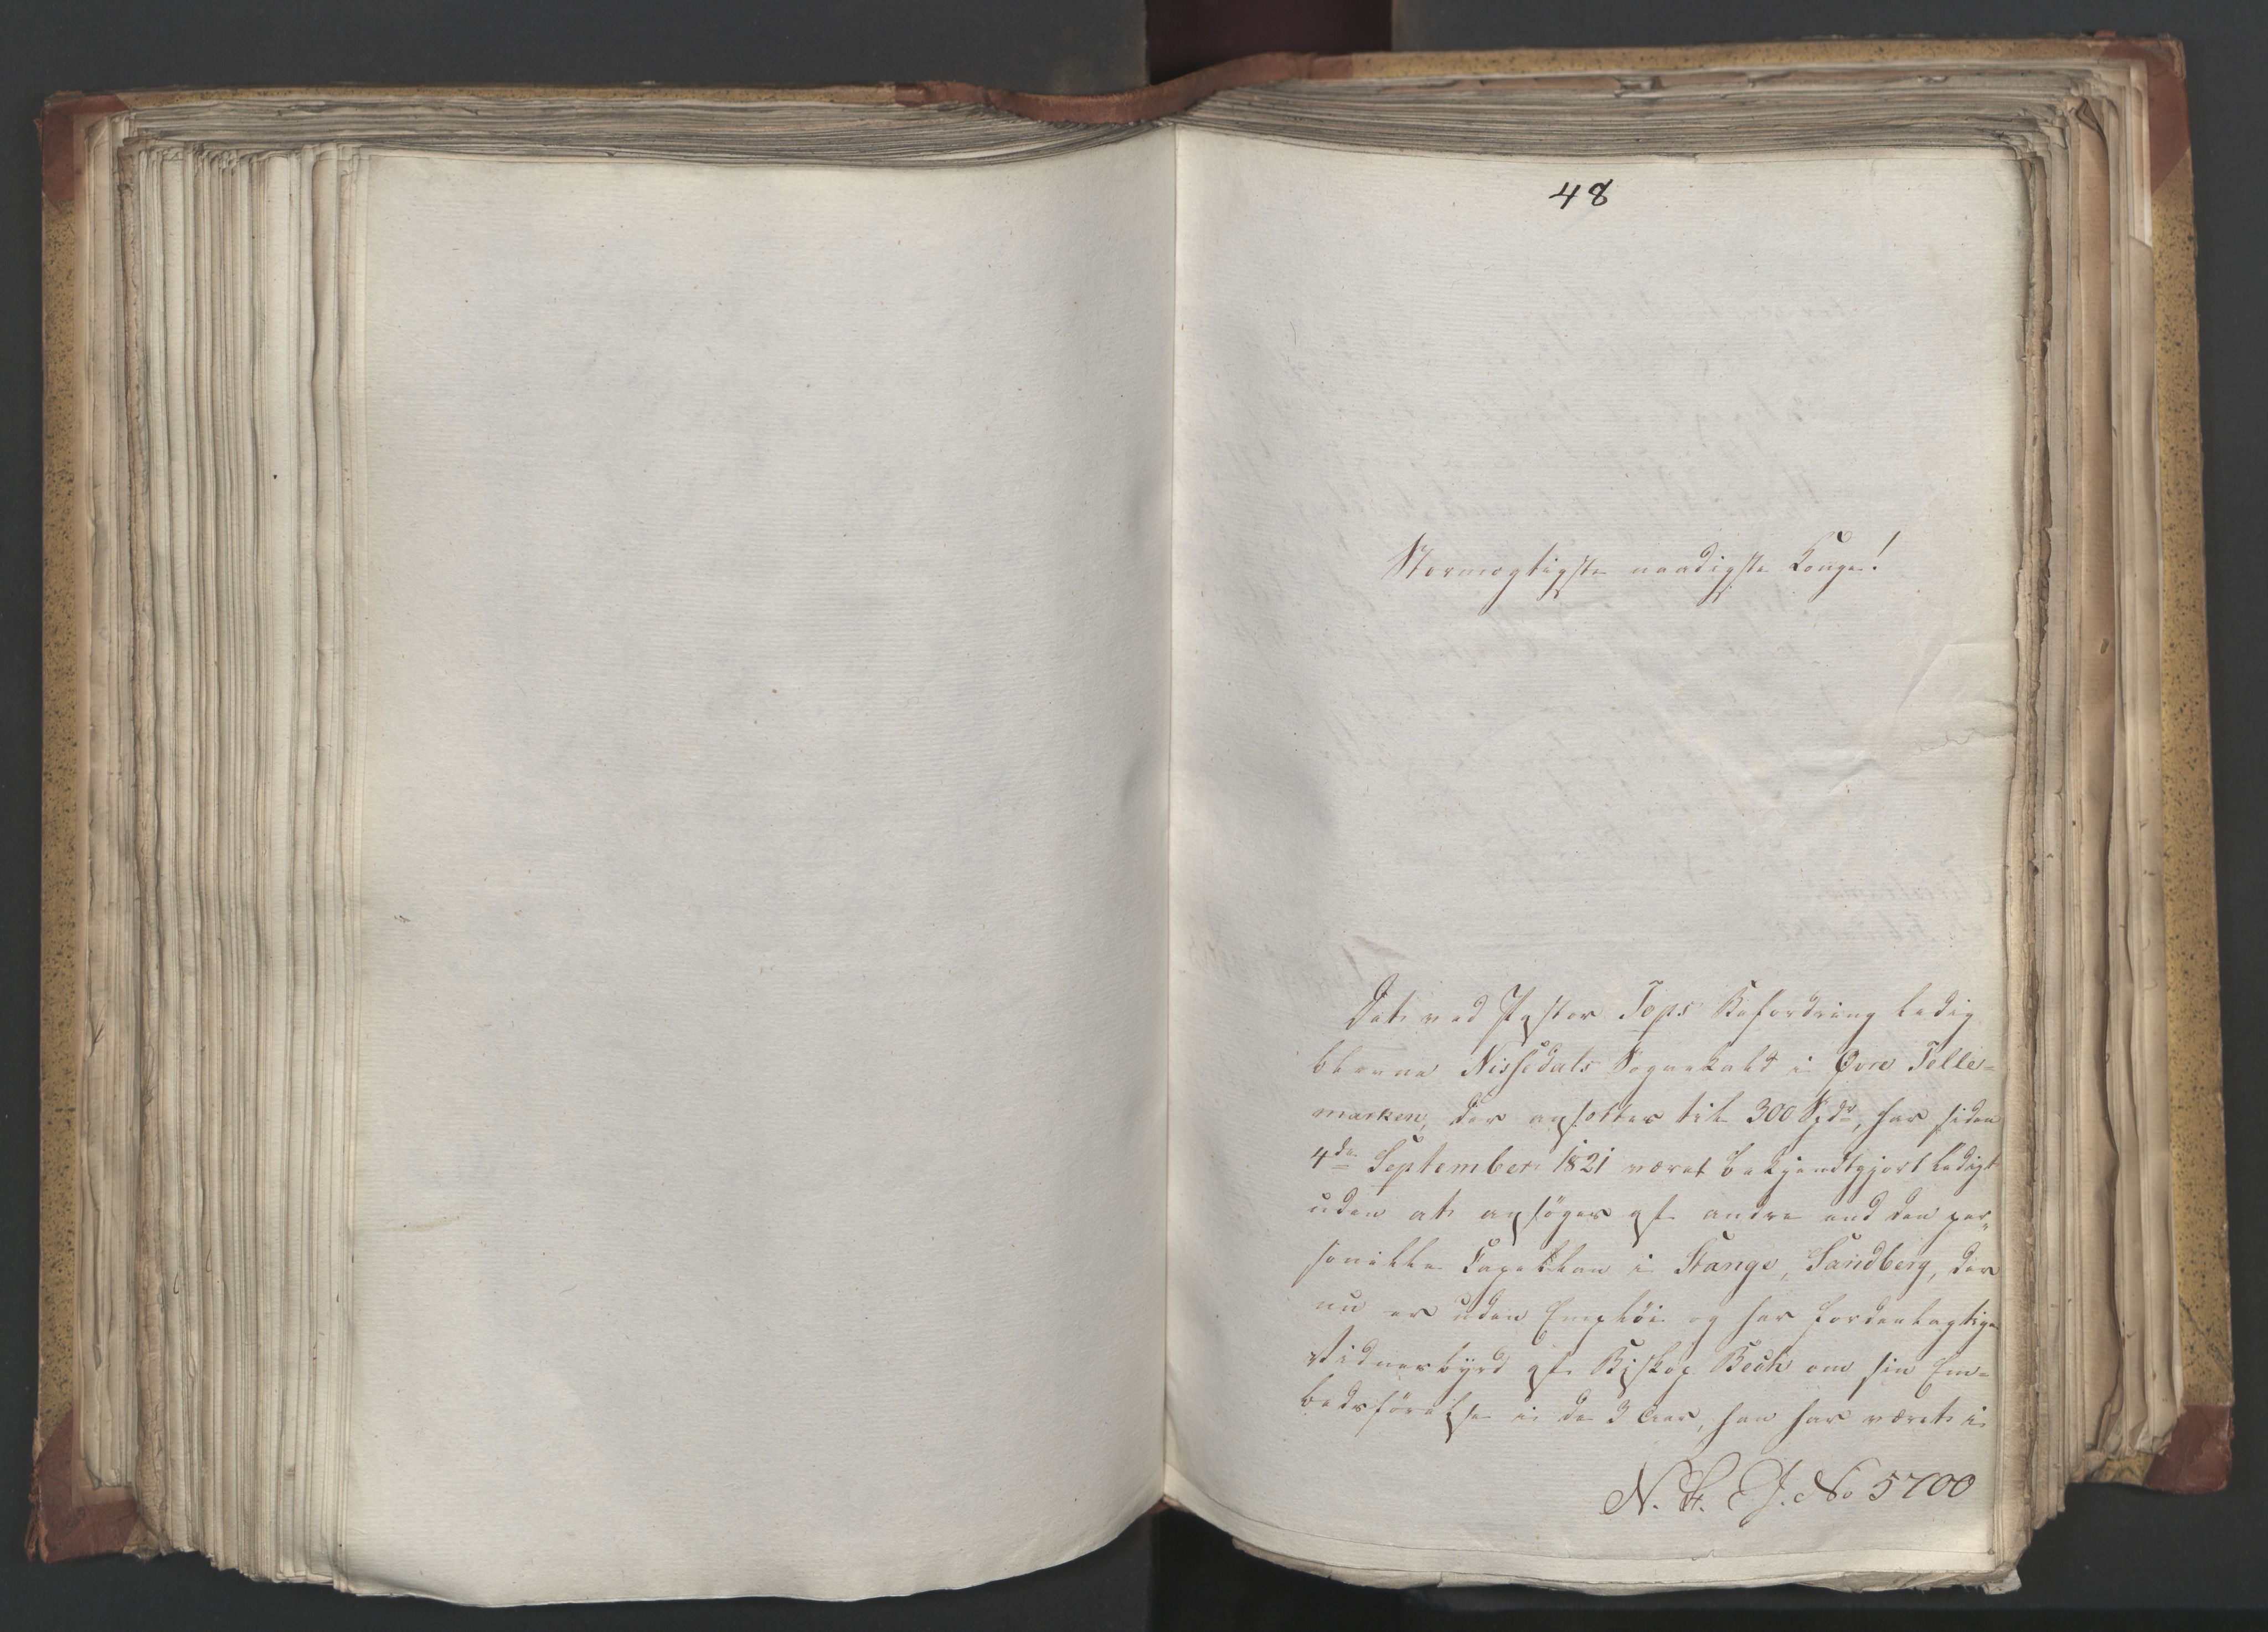 48
Stormægtigste naadigste Konge!
Det ved Pastor Tops Befordring ledig
blevne Nissedals Sognekald i Øvre Telle-
marken, der ansættes til 300 Spdr, har siden
4de September 1821 været bekjendtgjort ledigt
uden at ansøges af andre end den per-
sonelle Capellan i Stange, Sandberg, der
nu er uden Emploi og har fordeelagtige
Vidnesbyrd af Biskop Bech om sin Em-
bedsførelse i de 3 Aar, han har været i
N. St. J. No 5700